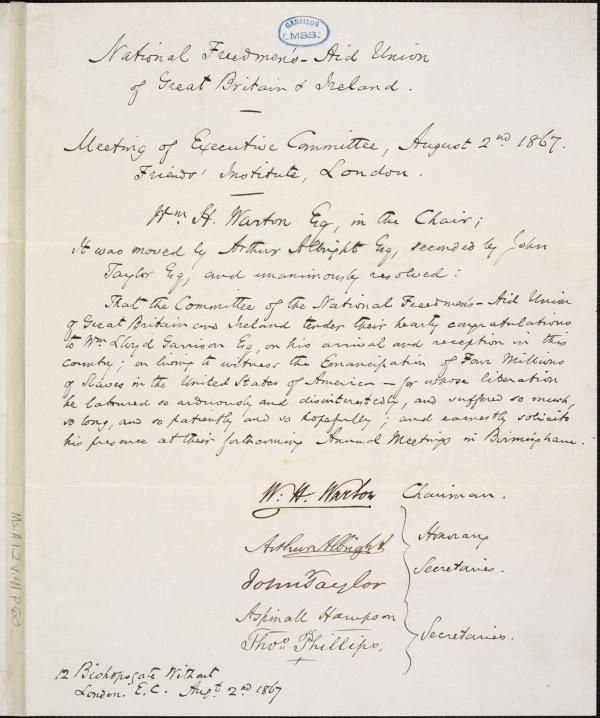 GARRISON
MSS.
National Freedmen's-Aid Union
of Great Britain & Ireland.
Meeting of Executive Committee, August 2nd 1867.
Friends' Institute, London.
Wm H. Warton Esq, in the Chair;
It was moved by Arthur Albright Esq, seconded by John
Taylor Esq, and unanimously resolved:
That the Committee of the National Freedmen's-Aid Union
of Great Britain and Ireland tender their hearty congratulations
to Wm Lloyd Garrison Esq, on his arrival and reception in this
country; in living to witness the Emancipation of Four Millions
of Slaves in the United States of America - for whose liberation
he laboured so arduously and disinterestedly, and suffered so much,
so long, and so patiently and so hopefully; and earnestly solicits
his presence at their forthcoming Annual Meetings in Birmingham.
W. H. Warton Chairman.
Arthur Albright
John Taylor
Honorary
Secretaries.
Aspinall Hampson
Thos Phillips,
Secretaries.
12 Bishopsgate Without
London. E.C. Augt 2nd 1867
Ms A.1.2 v.41 p.60